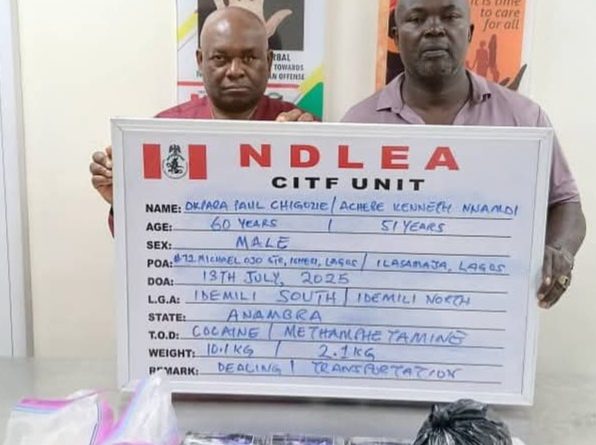 RBAL
TOWARDS
AN OFFENSE
t is
time
to care
for all
NDLEA
CITF UNIT
NAME: OKPARA PAUL CHIGOZIE / ACHERE KENNETH NNAMDI
AGE: 60 YEARS / 51 YEARS
SEX: MALE
POA: 72 MICHAEL OJO STR, ISHERI, LAGOS / ILASAMAJA, LAGOS
DOA: 13TH JULY, 2025
L.G.A: IDEMILI SOUTH / IDEMILI NORTH
STATE: ANAMBRA
T.O.D: COCAINE / METHAMPHETAMINE
WEIGHT: 10.1KG / 2.1KG
REMARK: DEALING / TRANSPORTATION